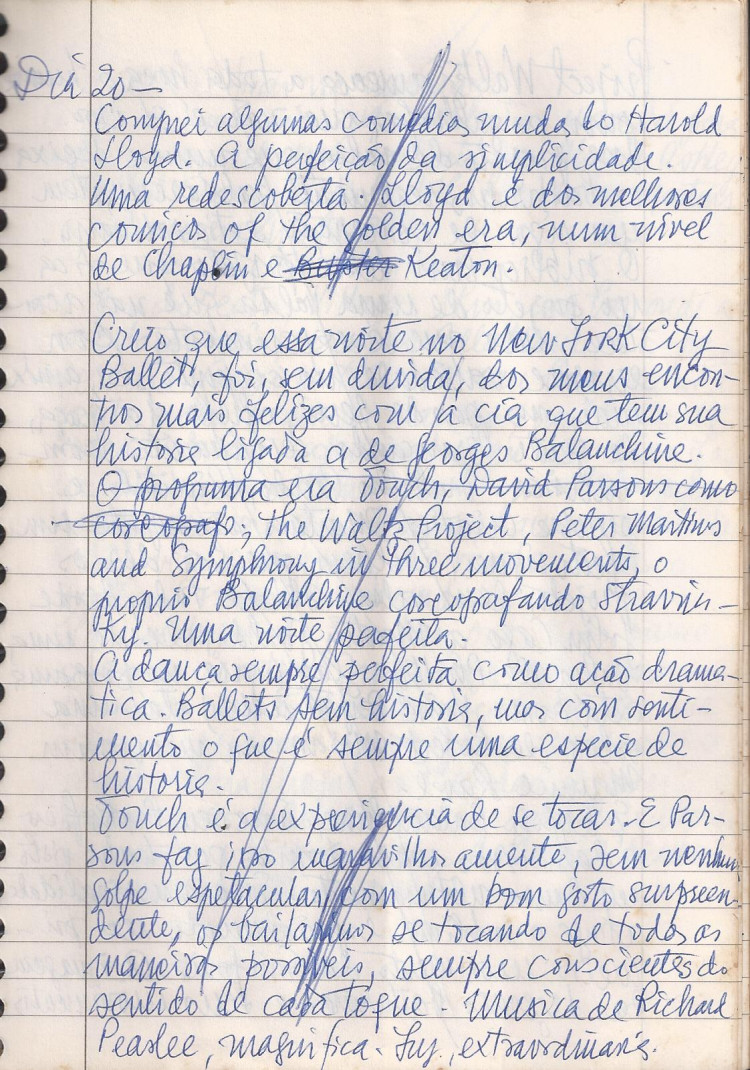 Dia 20 —
Comprei algumas comedias mudas do Harold
Lloyd. A perfeição da simplicidade.
Uma redescoberta. Lloyd é dos melhores
comicos of the golden era, num nivel
de Chaplin e Buster Keaton.
Creio que essa noite no New York City
Ballet, foi, sem duvida, dos meus encon-
tros mais felizes com a cia que tem sua
historia ligada a de Georges Balanchine.
O programa era Touch, David Parsons como
coreografo; The Waltz Project, Peter Martins
and Symphony in three movements, o
proprio Balanchine coreografando Stravins-
ky. Uma noite perfeita.
A dança sempre perfeita como ação drama-
tica. Ballets sem historia, mas com senti-
mento o que é sempre uma especie de
historia.
Touch é a experiencia de se tocar. E Par-
sons faz isso maravilhosamente, sem nenhum
golpe espetacular, com um bom gosto surpreen-
dente, os bailarinos se tocando de todos as
maneiras possiveis, sempre conscientes do
sentido de cada toque. Musica de Richard
Peaslee, magnifica. Luz, extraordinaria.